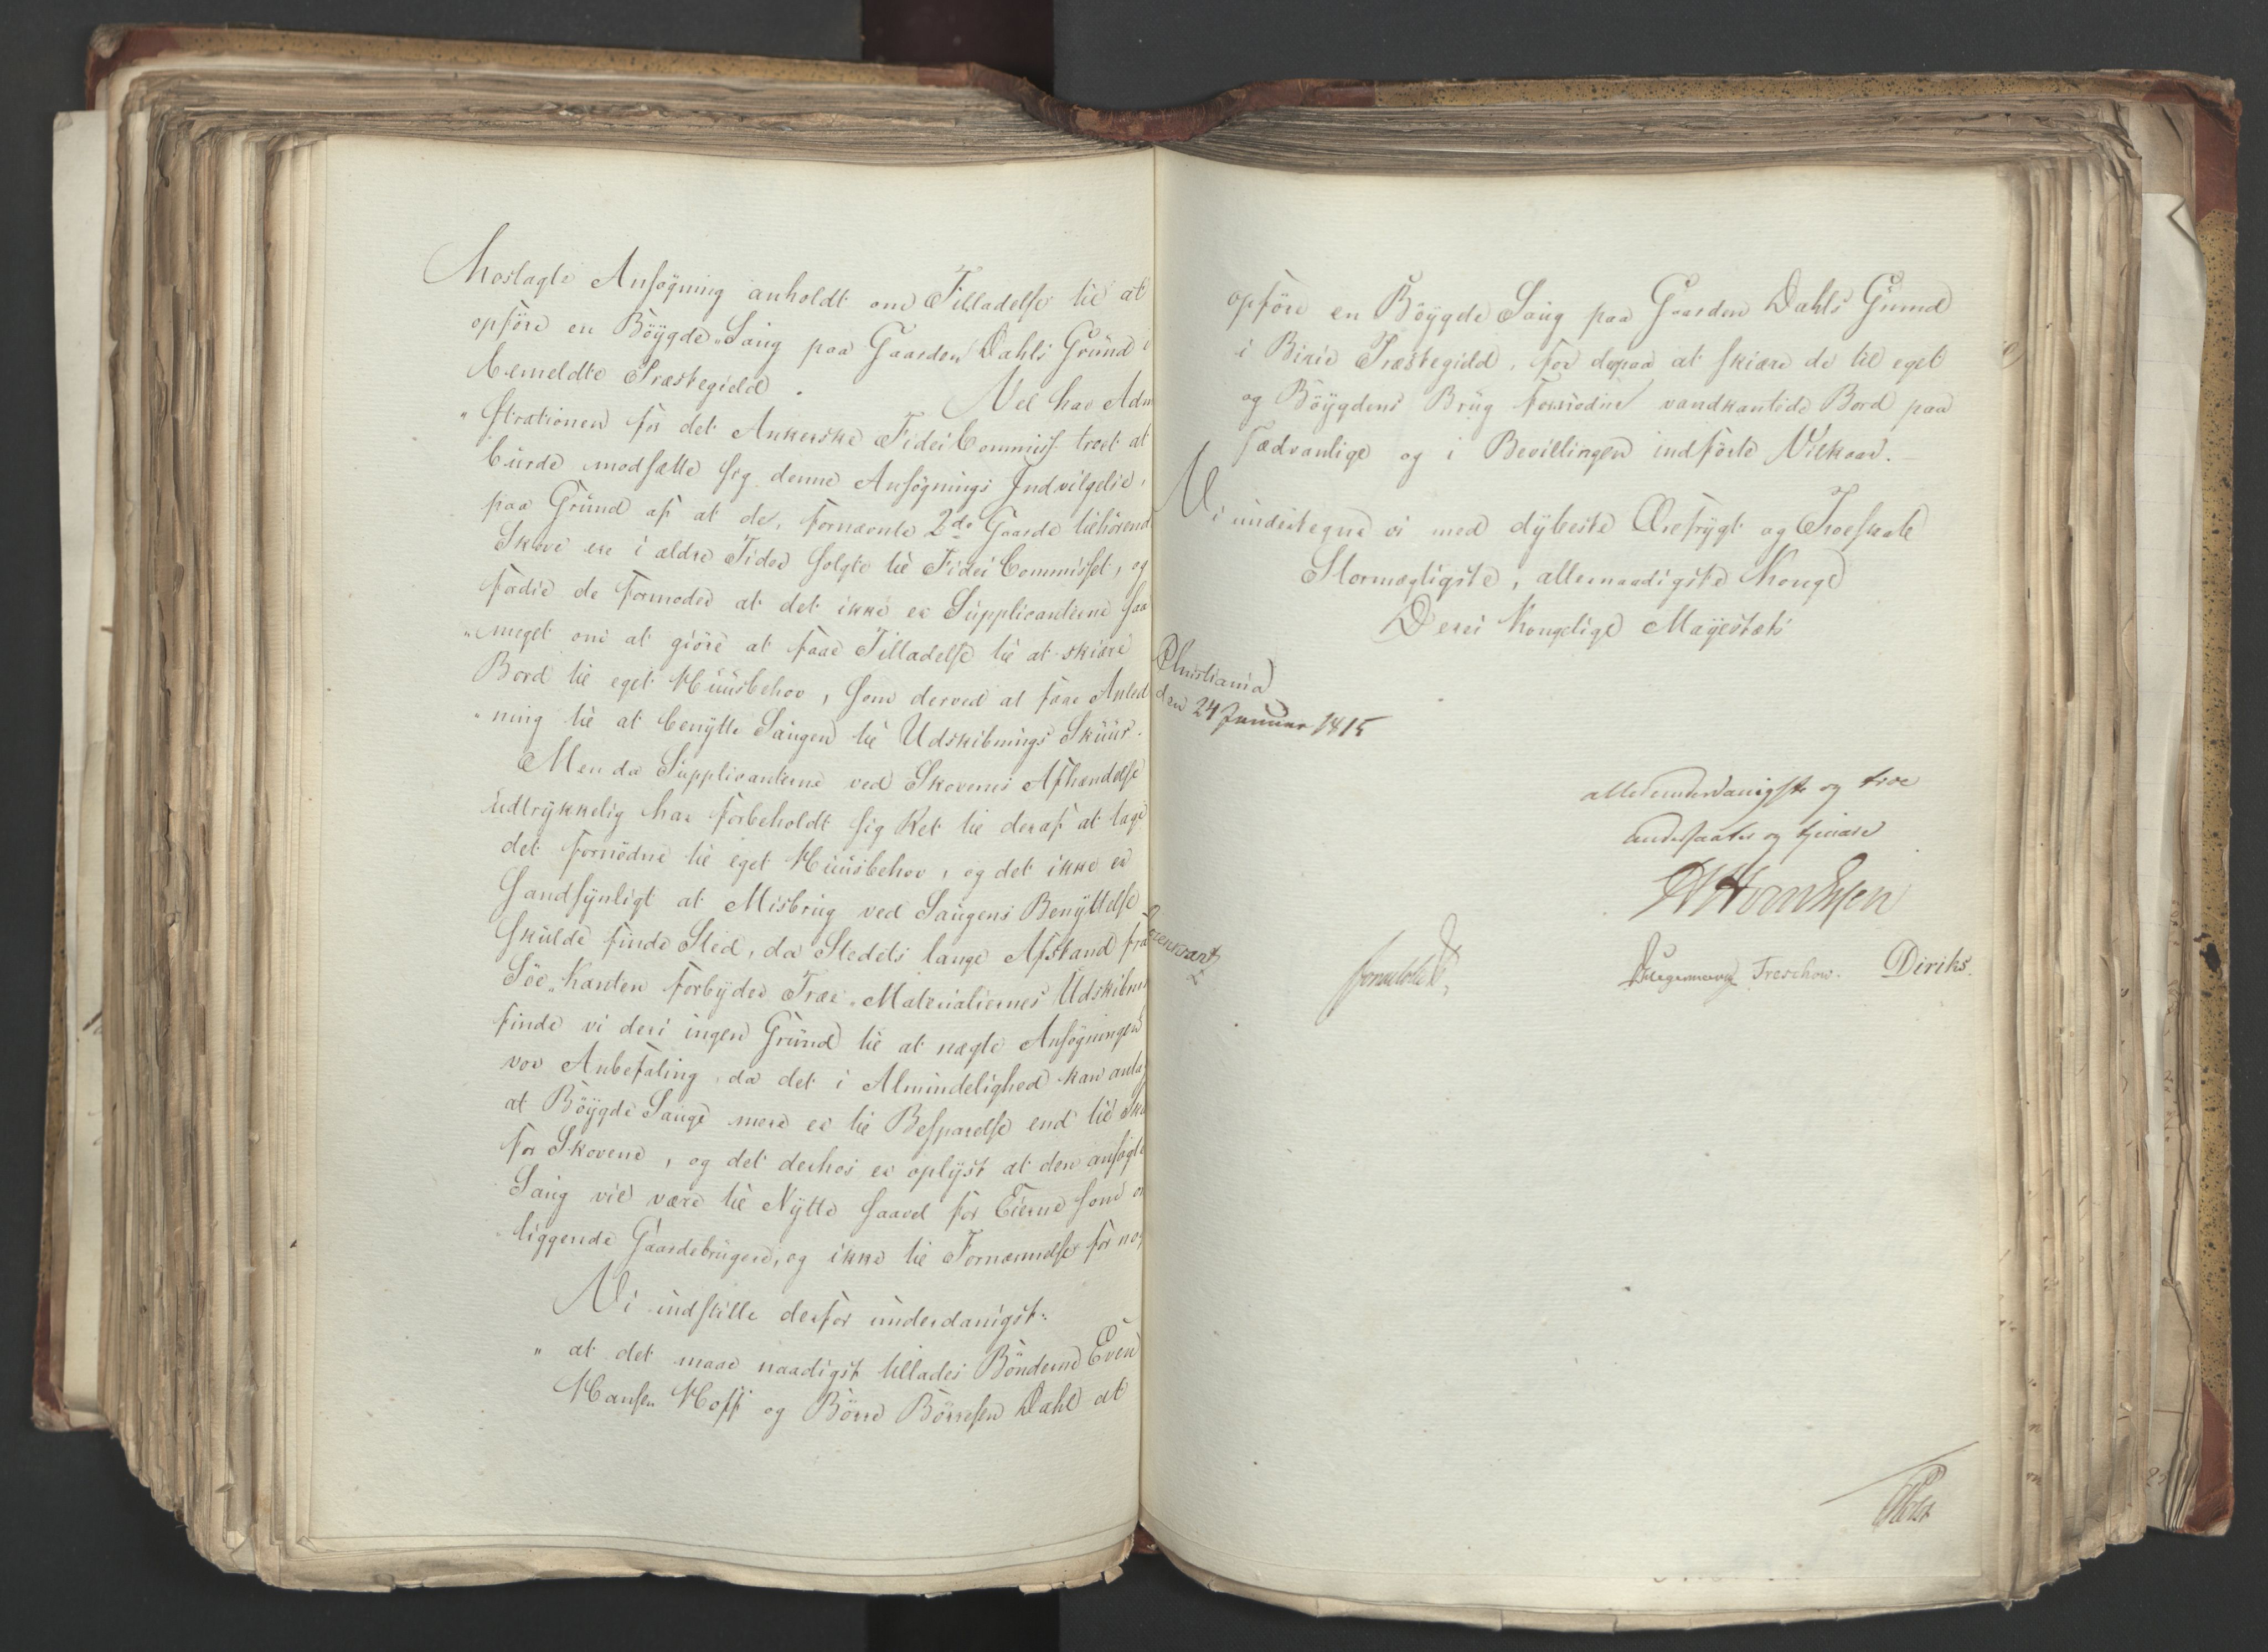 hoslagte Ansøgning anholdt om Tilladelse til at
opföre en Böygde-Saug paa Gaarden Dahls Grund i
bemeldte Præstegield. Vel har Adm
"strationen for det Ankerske Fidei Commiss troet at
burde modsætte sig denne Ansøgnings Indvilgelse,
paa Grund af at de, fornævnte 2de Gaarde tilhörend
Skove ere i ældre Tider solgte til Fidei Commisset, og
fordie de formoder at det ikke er Supplicanterne saa
"meget om at giöre at faae Tilladelse til at skiære
Bord til eget Huusbehov, som derved at faae Anled
"ning til at benytte Saugen til Udskibnings Skuur.
Men da Supplicanterne ved Skovenes Afhændelse
udtrykkelig har forbeholdt sig Ret til deraf at tage
det fornödne til eget Huusbehov, og det ikke er
sandsynligt at Misbrug ved Saugens Benyttelse
skulde finde Sted, da Stedets lange Afstand fra
Söe-Kanten forbyder Træe-Materialiernes Udskibni
finde vi deri ingen Grund til at nægte Ansøgningen
vor Anbefaling, da det i Almindelighed kan antag
at Böygde Sauge mere er til Besparelse end til Ska
for Skovene, og det derhos er oplyst at den ansøgte
Saug vil være til Nytte saavel for Eierne som om
liggende Gaardebrugere, og ikke til Fornærmelse for nog
Vi indstille derfor underdanigst:
" at det maae naadigst tillades Bönderne Even
Hansen Hoff og Börre Börresen Dahl at
opföre en Böygde Saug paa Gaarden Dahls Grund
i Birie Præstegield, for derpaa at skiære de til eget
og Böygdens Brug fornödne vandkantede Bord paa
sædvanlige og i Bevillingen indförte Vilkaar.
Vi undertegne vi med dybeste Ærefrygt og Troeskab
Stormægtigste, allernaadigste Konge
Deres Kongelige Mayestæts
Christiania
den 24 Januar 1815
allerunderdanigste og troe
undersaatter og tjenere
Sommerhielm
Diegemann Treschow. Diriks.